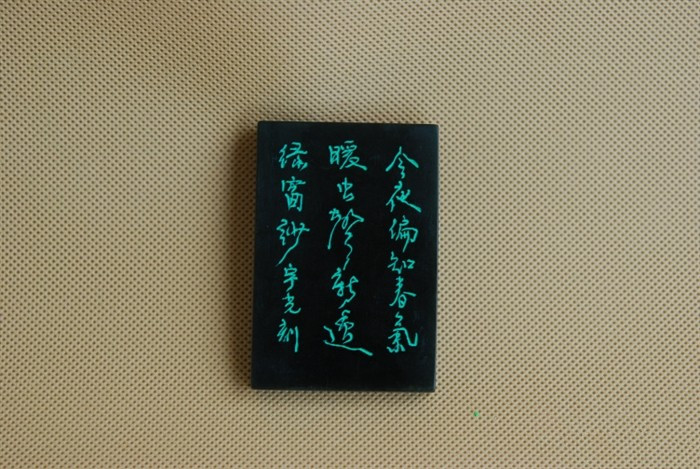 今夜偏知春氣
暖虫聲新透
綠窗紗宇光刻